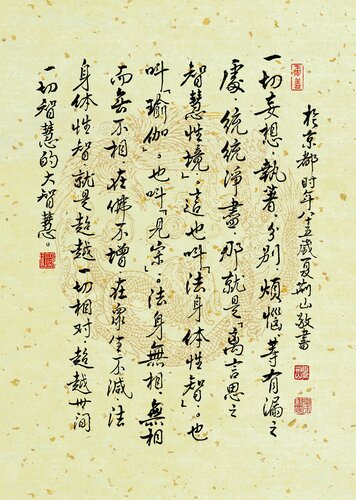 於京都時年八五歲夏山敬書
一切妄想、執著、分別、煩惱等有漏之
處,統統淨盡,那就是「離言思之
智慧性境」。這也叫「法身体性智」。也
叫「瑜伽」。也叫「見宗」。法身無相,無相
而無不相,在佛不增,在眾生不減,法
身体性智就是超越一切相對,超越世間
一切智慧的大智慧。